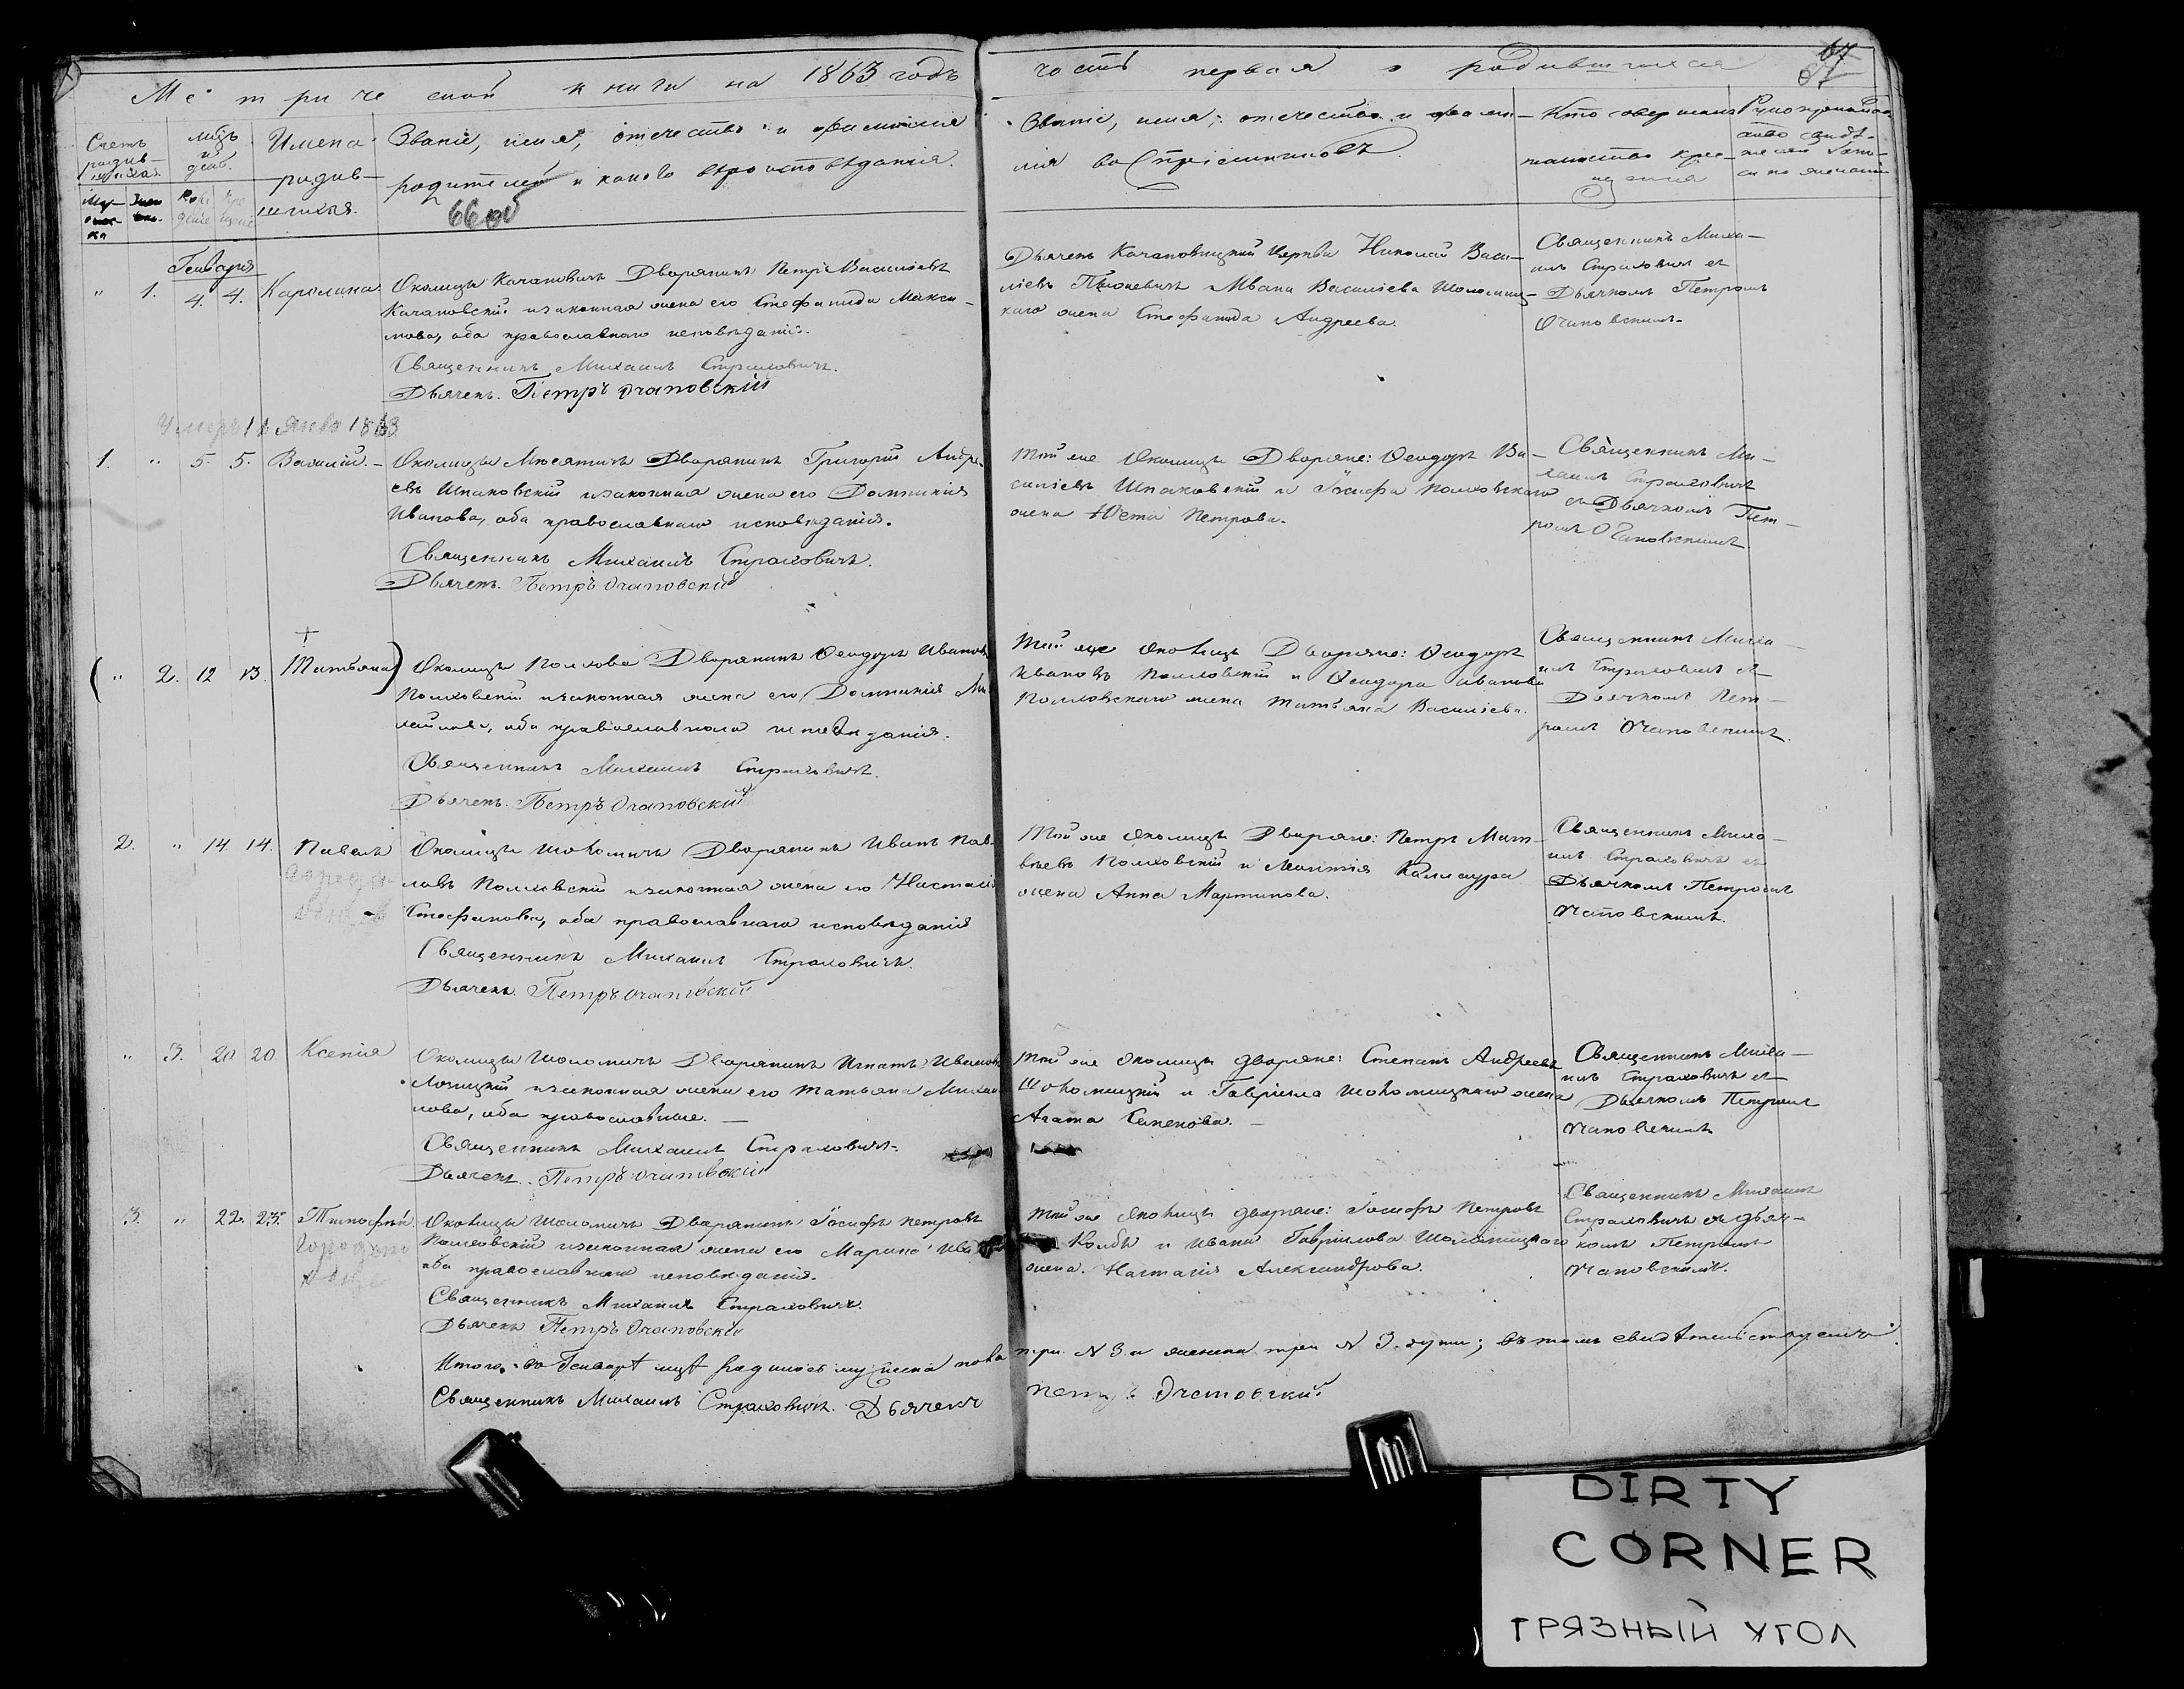 Метрической книги на 1863 годъ
часть первая о родившихся
67
Счетъ родив-
шихся.
Мѣсяцъ и день.
Имена родив-
шихся.
Званіе, имя, отечество и фамилія
родителей и какого вѣроисповѣданія.
66 об
Званіе, имя, отечество и фами-
лія воспріемниковъ.
Кто совершалъ
таинство кре-
щенія
Генваря
" 1. 4. 4. Каролина.
Околицы Качановичъ Дворянинъ Петръ Василіевъ
Качановскій и законная жена его Стефанида Макси-
мова, оба православнаго исповѣданія.
Священникъ Михаилъ Страховичъ.
Дьячекъ Петръ Очаповскій
Дьячекъ Качановицкой Церкви Николай Васи-
ліевъ Ивана Василіева Шоломиц-
каго жена Стефанида Андреева.
Священникъ Миха-
илъ Страховичъ съ
Дьячкомъ Петромъ
Очаповскимъ.
Умеръ 12 янв 1863
1. " 5. 5. Василій.
Околицы Мюсятичъ Дворянинъ Григорій Андре-
евъ Шпаковскій и законная жена его Домникія
Иванова, оба православнаго исповѣданія.
Священникъ Михаилъ Страховичъ.
Дьячекъ. Петръ Очаповскій
Той же Околицы Дворяне: Феодоръ Ва-
силіевъ Шпаковскій и Іосифа Полховскаго
жена Петрова.
Священникъ Ми-
хаилъ Страховичъ
съ Дьячкомъ Пет-
ромъ Очаповскимъ.
" 2. 12 13. Татьяна
Околицы Полхова Дворянинъ Феодоръ Ивановъ
Полховскій и законная жена его Домникія Ми-
хайлова, оба православнаго исповѣданія.
Священникъ Михаилъ Страховичъ.
Дьячекъ. Петръ Очаповскій
Той же Околицы Дворяне: Феодоръ
Ивановъ Полховскій и Феодора Иванова
Полховскаго жена Татьяна Василіева.
Священникъ Миха-
илъ Страховичъ съ
Дьячкомъ Пет-
ромъ Очаповскимъ.
2. " 14 14. Павелъ
Околицы Шоломичъ Дворянинъ Иванъ Пав-
ловъ Полховскій и законная жена его Настасія
Стефанова, оба православнаго исповѣданія
Священникъ Михаилъ Страховичъ.
Дьячекъ. Петръ Очаповскій
Той же Околицы Дворяне: Петръ Мат-
вѣевъ Полховскій и
жена Анна Мартинова.
Священникъ Миха-
илъ Страховичъ съ
Дьячкомъ Петромъ
Очаповскимъ.
" 3. 20 20. Ксенія
Околицы Шоломичъ Дворянинъ Игнатъ Ивановъ
и законная жена его Татьяна Михай-
лова, оба православные.
Священникъ Михаилъ Страховичъ.
Дьячекъ. Петръ Очаповскій
Той же Околицы дворяне: Степанъ Андреевъ
Шоломицкій и Гавріила Шоломицкаго жена
Агата Семенова.
Священникъ Миха-
илъ Страховичъ съ
Дьячкомъ Петромъ
Очаповскимъ
3. " 22. 23. Тимофей.
Околицы Шоломичъ Дворянинъ Іосифъ Петровъ
Полховскій и законная жена его Марина
оба православнаго исповѣданія.
Священникъ Михаилъ Страховичъ.
Дьячекъ Петръ Очаповскій
Той же Околицы дворяне: Іосифъ Петровъ
Колбъ и Ивана Гавріилова Шоломицкаго
жена Настасія Александрова.
Священникъ Михаилъ
Страховичъ съ дьяч-
комъ Петромъ
Очаповскимъ.
Итого въ Генварѣ мцѣ родилось мужеска пола три № 3 и женска три № 3 души; въ томъ свидѣтельствуемъ
Священникъ Михаилъ Страховичъ. Дьячекъ Петръ Очаповскій
DIRTY
CORNER
ГРЯЗНЫЙ УГОЛ